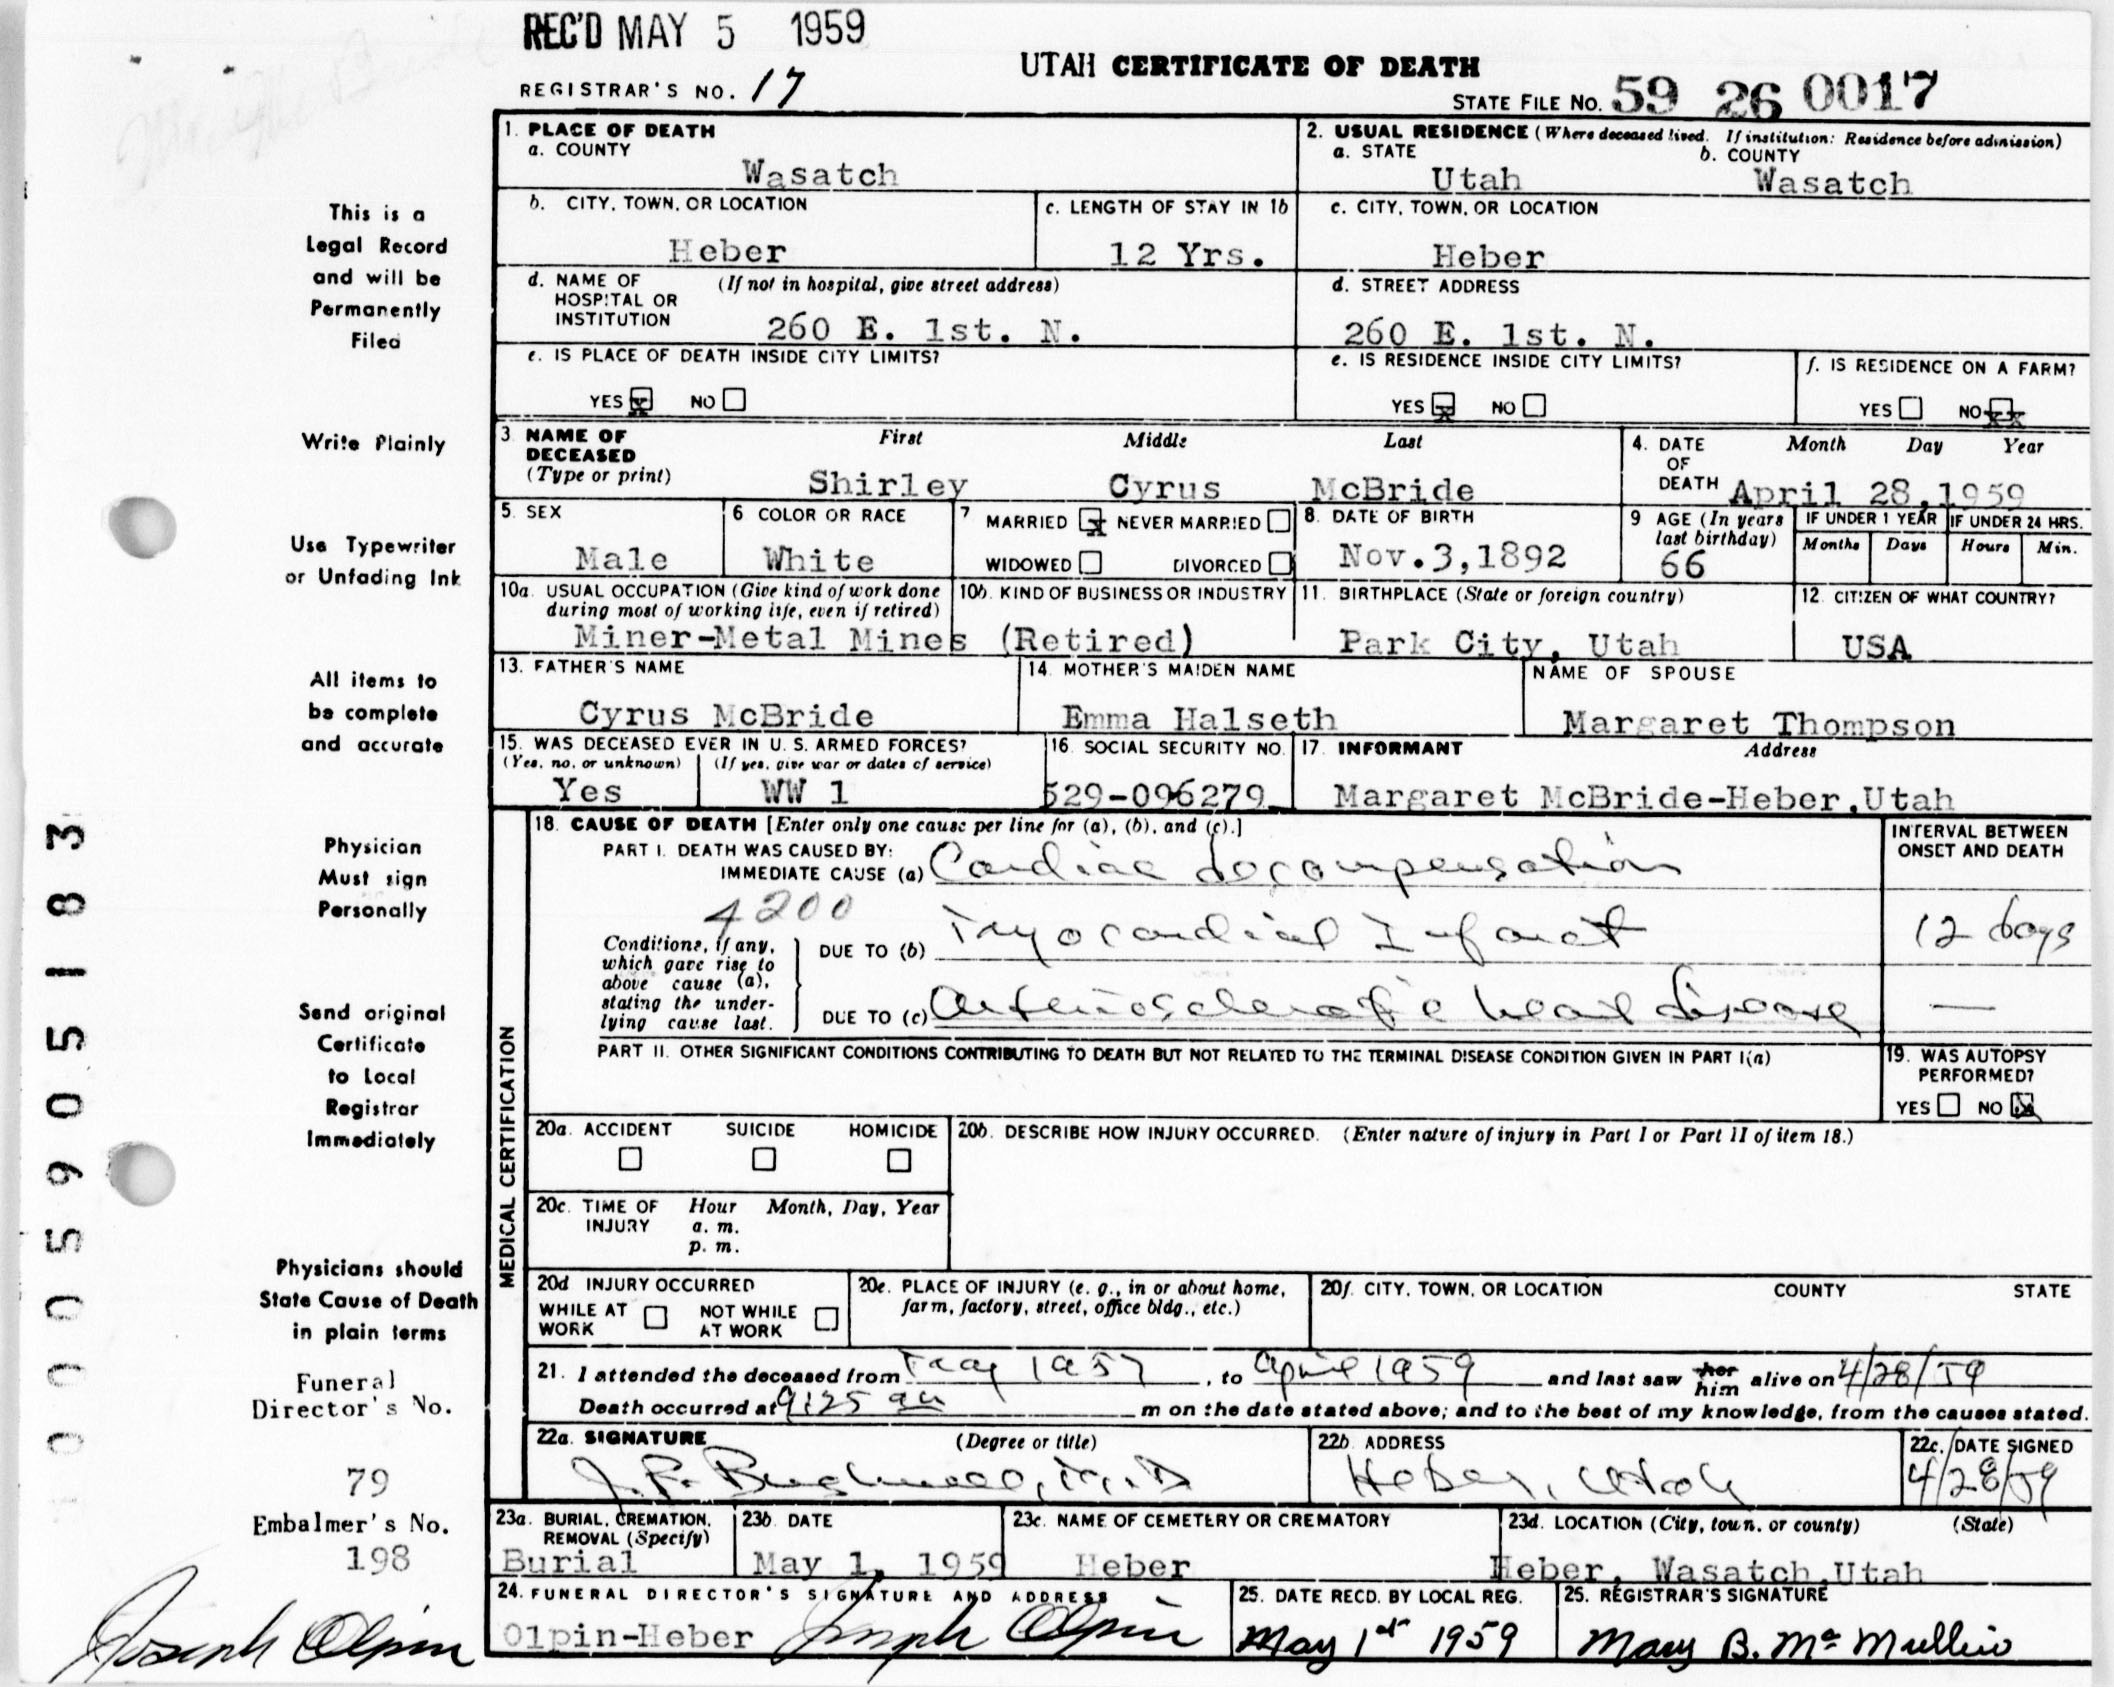 REC'D MAY 5 1959
UTAH CERTIFICATE OF DEATH
REGISTRAR'S NO. 17
STATE FILE No. 59 26 0017
1. PLACE OF DEATH
a. COUNTY
Wasatch
2. USUAL RESIDENCE (Where deceased lived. If institution: Residence before admission)
a. STATE
Utah
b. COUNTY
Wasatch
b. CITY, TOWN, OR LOCATION
Heber
c. LENGTH OF STAY IN 1b
12 Yrs.
c. CITY, TOWN, OR LOCATION
Heber
d. NAME OF HOSPITAL OR INSTITUTION (If not in hospital, give street address)
260 E. 1st. N.
d. STREET ADDRESS
260 E. 1st. N.
e. IS PLACE OF DEATH INSIDE CITY LIMITS?
YES x NO
e. IS RESIDENCE INSIDE CITY LIMITS?
YES x NO
f. IS RESIDENCE ON A FARM?
YES NO xx
3. NAME OF DECEASED (Type or print)
First Middle Last
Shirley Cyrus McBride
4. DATE OF DEATH
Month Day Year
April 28,1959
5. SEX
Male
6 COLOR OR RACE
White
7 MARRIED x NEVER MARRIED
WIDOWED DIVORCED
8. DATE OF BIRTH
Nov.3,1892
9 AGE (In years last birthday)
66
IF UNDER 1 YEAR
Months Days
IF UNDER 24 HRS.
Hours Min.
10a. USUAL OCCUPATION (Give kind of work done during most of working life, even if retired)
10b. KIND OF BUSINESS OR INDUSTRY
Miner-Metal Mines (Retired)
11. BIRTHPLACE (State or foreign country)
Park City, Utah
12. CITIZEN OF WHAT COUNTRY?
USA
13. FATHER'S NAME
Cyrus McBride
14. MOTHER'S MAIDEN NAME
Emma Halseth
NAME OF SPOUSE
Margaret Thompson
15. WAS DECEASED EVER IN U. S. ARMED FORCES?
(Yes, no, or unknown) (If yes, give war or dates of service)
Yes WW 1
16. SOCIAL SECURITY NO.
529-096279
17. INFORMANT Address
Margaret McBride-Heber,Utah
MEDICAL CERTIFICATION
18. CAUSE OF DEATH [Enter only one cause per line for (a), (b), and (c).]
INTERVAL BETWEEN ONSET AND DEATH
PART I. DEATH WAS CAUSED BY:
IMMEDIATE CAUSE (a) Cardiac decompensation
4200
Conditions, if any, which gave rise to above cause (a), stating the underlying cause last.
DUE TO (b) Myocardial Infarct
12 days
DUE TO (c) Arteriosclerotic heart disease
—
PART II. OTHER SIGNIFICANT CONDITIONS CONTRIBUTING TO DEATH BUT NOT RELATED TO THE TERMINAL DISEASE CONDITION GIVEN IN PART I(a)
19. WAS AUTOPSY PERFORMED?
YES NO x
20a. ACCIDENT SUICIDE HOMICIDE
20b. DESCRIBE HOW INJURY OCCURRED. (Enter nature of injury in Part I or Part II of item 18.)
20c. TIME OF INJURY Hour Month, Day, Year
a. m.
p. m.
20d INJURY OCCURRED
WHILE AT WORK NOT WHILE AT WORK
20e. PLACE OF INJURY (e. g., in or about home, farm, factory, street, office bldg., etc.)
20f. CITY, TOWN, OR LOCATION COUNTY STATE
21. I attended the deceased from May 1957, to April 1959 and last saw her him alive on 4/28/59
Death occurred at 9:25 am m on the date stated above; and to the best of my knowledge, from the causes stated.
22a. SIGNATURE (Degree or title)
M.D
22b. ADDRESS
Heber, Utah
22c. DATE SIGNED
4/28/59
23a. BURIAL, CREMATION, REMOVAL (Specify)
Burial
23b. DATE
May 1, 1959
23c. NAME OF CEMETERY OR CREMATORY
Heber
23d. LOCATION (City, town, or county) (State)
Heber, Wasatch,Utah
24. FUNERAL DIRECTOR'S SIGNATURE AND ADDRESS
Olpin-Heber Joseph Olpin
25. DATE RECD. BY LOCAL REG.
May 1st 1959
25. REGISTRAR'S SIGNATURE
Mary B. McMullin
This is a
Legal Record
and will be
Permanently
Filed
Write Plainly
Use Typewriter
or Unfading Ink
All items to
be complete
and accurate
Physician
Must sign
Personally
Send original
Certificate
to Local
Registrar
Immediately
Physicians should
State Cause of Death
in plain terms
Funeral
Director's No.
79
Embalmer's No.
198
Joseph Olpin
0005905183